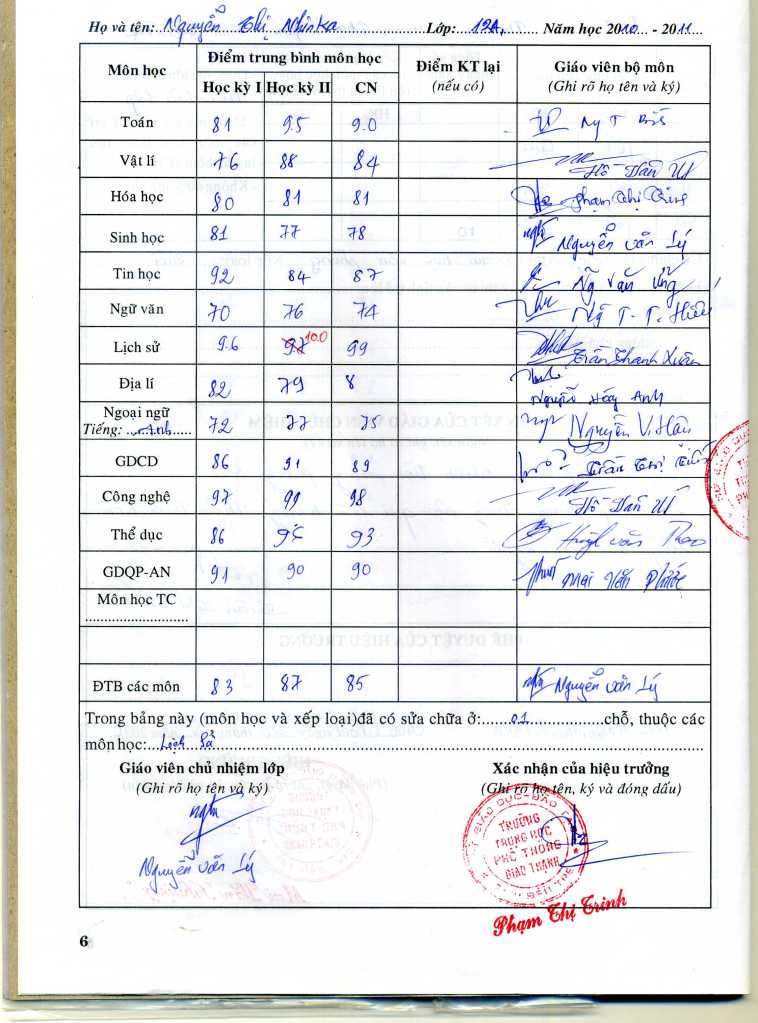 Họ và tên: Nguyễn Thị Nhinka Lớp: 12A1 Năm học 2010 - 2011
Môn học Điểm trung bình môn học Điểm KT lại Giáo viên bộ môn
Học kỳ I Học kỳ II CN (nếu có) (Ghi rõ họ tên và ký)
Toán 81 9.5 9.0
Vật lí 76 88 84 Hồ Văn Út
Hóa học 80 81 81 Phạm Thị
Sinh học 81 77 78 Nguyễn Văn Lý
Tin học 92 84 87 Ng Văn
Ngữ văn 70 76 74 Ng T. T. Hiếu
Lịch sử 9.6 97 10.0 99 Trần Thanh Xuân
Địa lí 82 79 8 Nguyễn Anh
Ngoại ngữ
Tiếng: Anh 72 77 75 Nguyễn V. Hậu
GDCD 86 91 89 Trần Thị
Công nghệ 97 99 98 Hồ Văn Út
Thể dục 86 95 93 Huỳnh Văn
GDQP-AN 91 90 90 Mai Văn Phước
Môn học TC
ĐTB các môn 83 87 85 Nguyễn Văn Lý
Trong bảng này (môn học và xếp loại)đã có sửa chữa ở: 01 chỗ, thuộc các
môn học: Lịch Sử
Giáo viên chủ nhiệm lớp Xác nhận của hiệu trưởng
(Ghi rõ họ tên và ký) (Ghi rõ họ tên, ký và đóng dấu)
TRƯỜNG
TRUNG HỌC
PHỔ THÔNG
GIAO THẠNH
Nguyễn Văn Lý
Phạm Thị Trinh
6